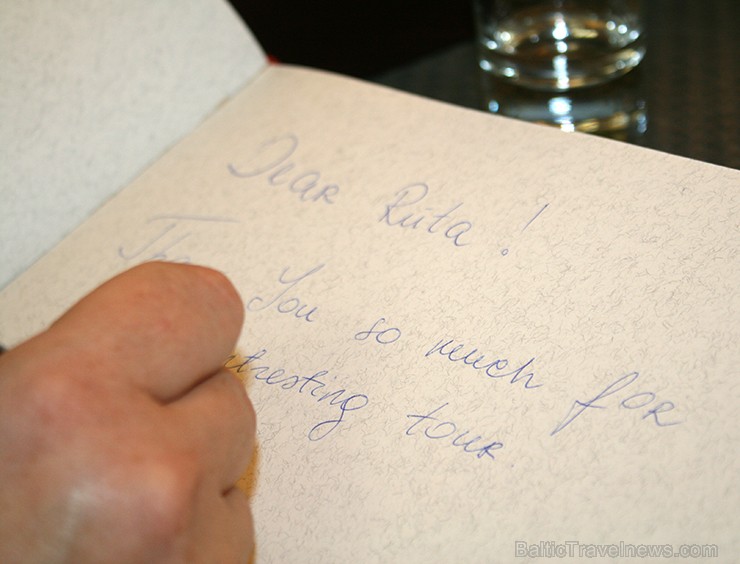 Dear Ruta!
You so much for
tresting tour
BalticTravelnews.com